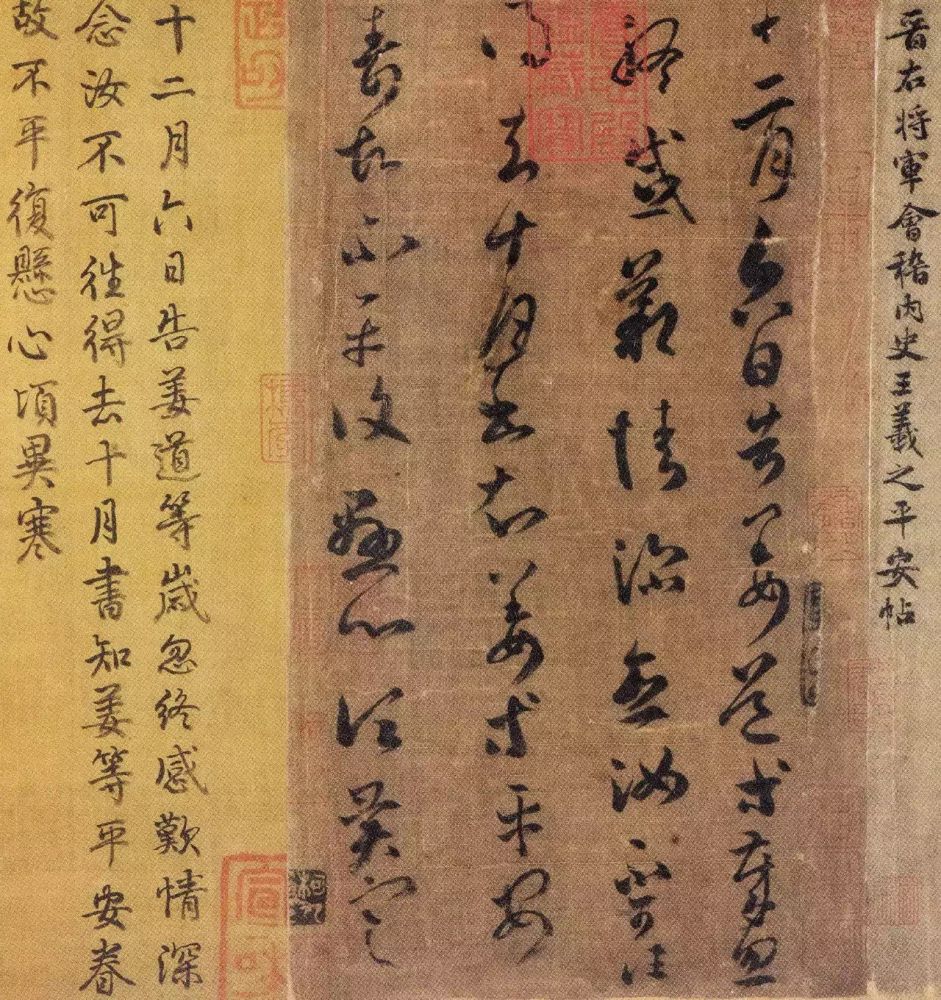 晋右将軍會稽内史王羲之平安帖
十二月六日告姜道等歲忽
終感歎情深念汝不可往
得去十月書知姜等平安
故不平復懸心頃異寒
十二月六日告姜道等歲忽終感歎情深
念汝不可往得去十月書知姜等平安眷
故不平復懸心頃異寒
宣和